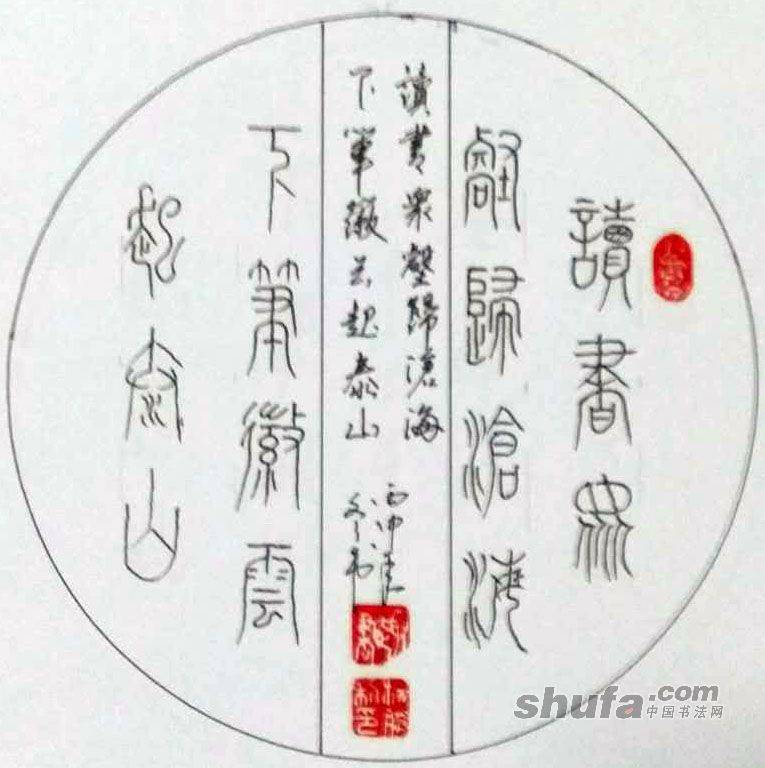 讀書衆
壑歸滄海
讀書衆壑歸滄海
下筆微云起泰山
丙申
下筆微雲
起泰山
shufa.com
中国书法网